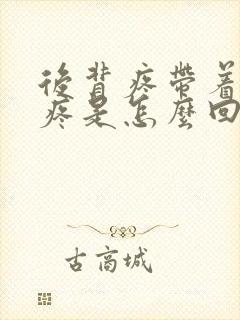 後背疼帶着
疼是怎麼回
古高城